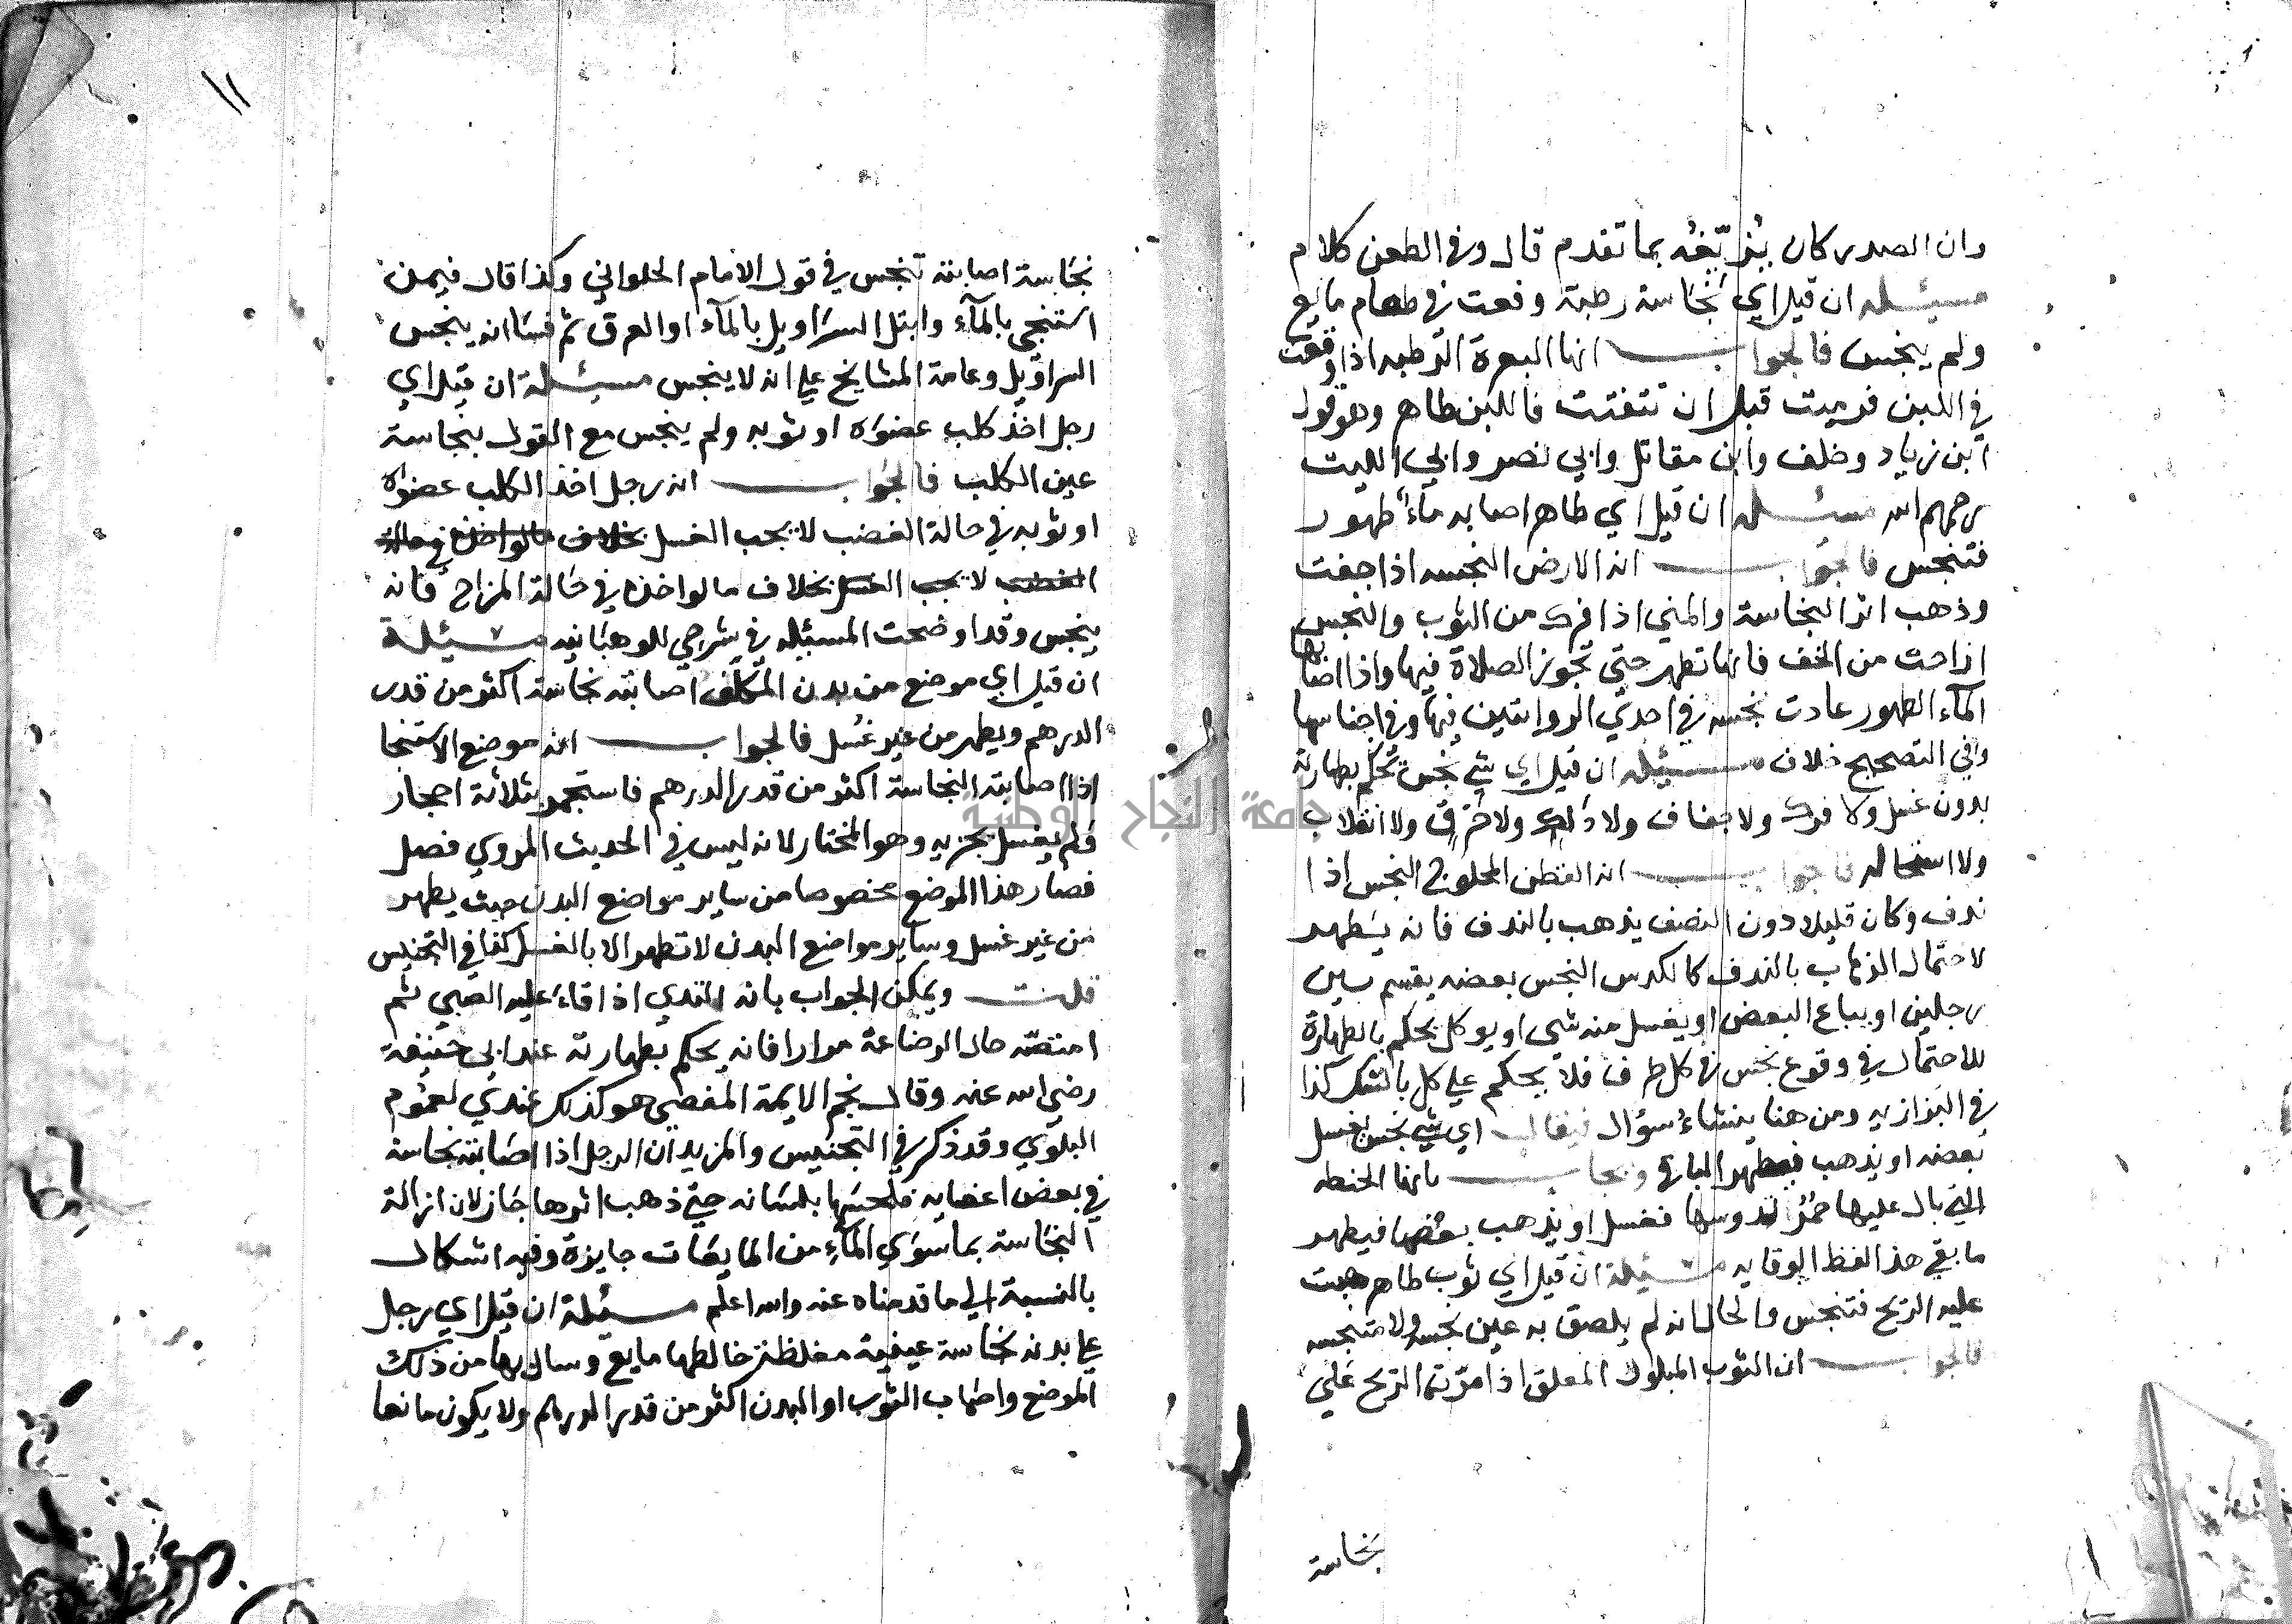 وان الصدر كان يزيفه بما تقدم قال وفي الطعن كلام
مسئله ان قيل اي نجاسة رطبة وقعت في طعام مايع
ولم ينجس فالجواب انها البعرة الرطبه اذا وقعت
في اللبن فرميت قبل ان تتفتت فاللبن طاهر وهو قول
ابن زياد وخلف وابن مقاتل وابي نصر وابي الليث
رحمهم الله مسئله ان قيل اي طاهر اصابه ماء طهور
فتنجس فالجواب انه الارض النجسه اذا جفت
وذهب اثر النجاسة والمني اذا فرك من الثوب والنجس
اذا حت من الخف فانها تطهر حتى تجوز الصلاة فيها واذا اصابها
الماء الطهور عادت نجسه في احدي الروايتين فيها وفي اجناسها
وفي التصحيح خلاف مسئيله ان قيل اي شي نجس تحكم بطهارته
بدون غسل ولا فرك ولا جفاف ولا دلك ولا خرق ولا انقلاب
ولا استحاله فالجواب انه القطن المحلوج النجس اذا
ندف وكان قليلا دون النصف يذهب بالندف فانه يطهر
لاحتمال الذهاب بالندف كالكدس النجس بعضه يقسم بين
رجلين او يباع البعض او يغسل منه شي او يوكل يحكم بالطهارة
للاحتمال في وقوع نجس في كل طرف فلا يحكم علي كل بالشك كذا
في البزازيه ومن هنا ينشاء سؤال فيقال اي شي نجس يغسل
بعضه او يذهب فيطهر الباقي ويجاب بانها الحنطه
التي بال عليها حمر تدوسها فغسل او يذهب بعضها فيطهر
ما بقي هذا لفظ الوقايه مسئيلة ان قيل اي ثوب طاهر هبت
عليه الريح فتنجس والحال انه لم يلصق به عين نجسه ولا متنجسه
فالجواب ان الثوب المبلول المعلق اذا مرت الريح علي
نجاسة
١١
نجاسة اصابته تنجس في قول الامام الحلواني وكذا قال فيمن
استنجي بالماء وابتل السراويل بالماء او العرق ثم فسا انه ينجس
السراويل وعامة المشايخ علي انه لا ينجس مسئلة ان قيل اي
رجل اخذ كلب عضوه او ثوبه ولم ينجس مع القول بنجاسة
عين الكلب فالجواب انه رجل اخذ الكلب عضوه
او ثوبه في حالة الغضب لا يجب الغسل بخلاف مالو اخذ في حالة
الغضب لا يجب الغسل بخلاف ما لو اخذه في حالة المزاح فانه
ينجس وقد اوضحت المسئيله في شرحي للوهبانيه مسئيلة
ان قيل اي موضع من بدن المكلف اصابته نجاسة اكثر من قدر
الدرهم ويطهر من غير غسل فالجواب انه موضع الاستنجا
اذا اصابته النجاسة اكثر من قدر الدرهم فاستجمر بثلاثة احجار
ولم يغسل يجزيه وهو المختار لانه ليس في الحديث المروي فصل
فصار هذا الموضع مخصوصا من ساير مواضع البدن حيث يطهر
من غير غسل وساير مواضع البدن لا تطهر الا بالغسل كذا في التجنيس
قلت ويمكن الجواب بانه الثدي اذا قاء عليه الصبي ثم
امتصه حال الرضاعة مرارا فانه يحكم بطهارته عند ابي حنيفة
رضي الله عنه وقال نجم الايمة هو كذلك عندي لعموم
البلوي وقد ذكر في التجنيس والمزيد ان الرجل اذا اصابته نجاسة
في بعض اعضايه فلحسها بلسانه حتي ذهب اثرها جاز لان ازالة
النجاسة بما سوي الماء من المايعات جايزة وفيه اشكال
بالنسبة الي ما قدمناه عنه والله اعلم مسئلة ان قيل اي رجل
علي بدنه نجاسة عينية مغلظة خالطها مايع وسال بها من ذلك
الموضع واصاب الثوب او البدن اكثر من قدر الدرهم ولا يكون مانعا
جامعة النجاح الوطنية